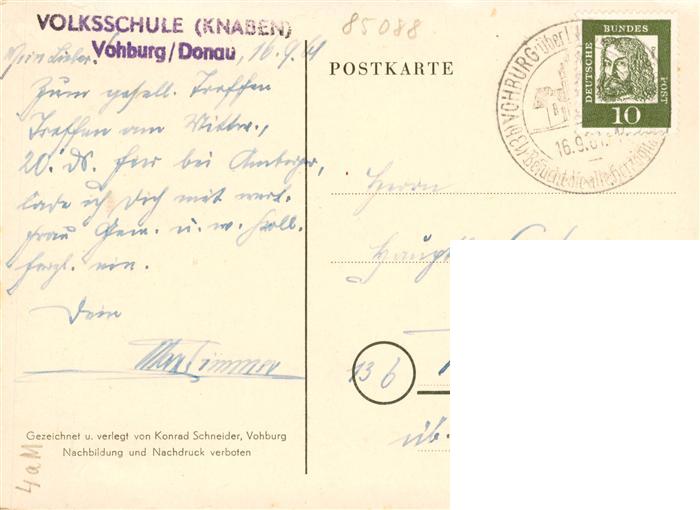 VOLKSSCHULE (KNABEN)
Vohburg/Donau, 16.9.61
85088
Mein Lieber,
Zum gesell. Treffen
Treffen am Mittw.,
20. ds. hier bei Amberger,
lade ich Dich mit wert.
Frau Gem. u. w. Koll.
herzl. ein.
Dein
Gezeichnet u. verlegt von Konrad Schneider, Vohburg
Nachbildung und Nachdruck verboten
4aM
POSTKARTE
DEUTSCHE BUNDES POST
10
(13b) VOHBURG über
16.9.61
Besucht die alte Herzog
Herrn
13 b
üb.